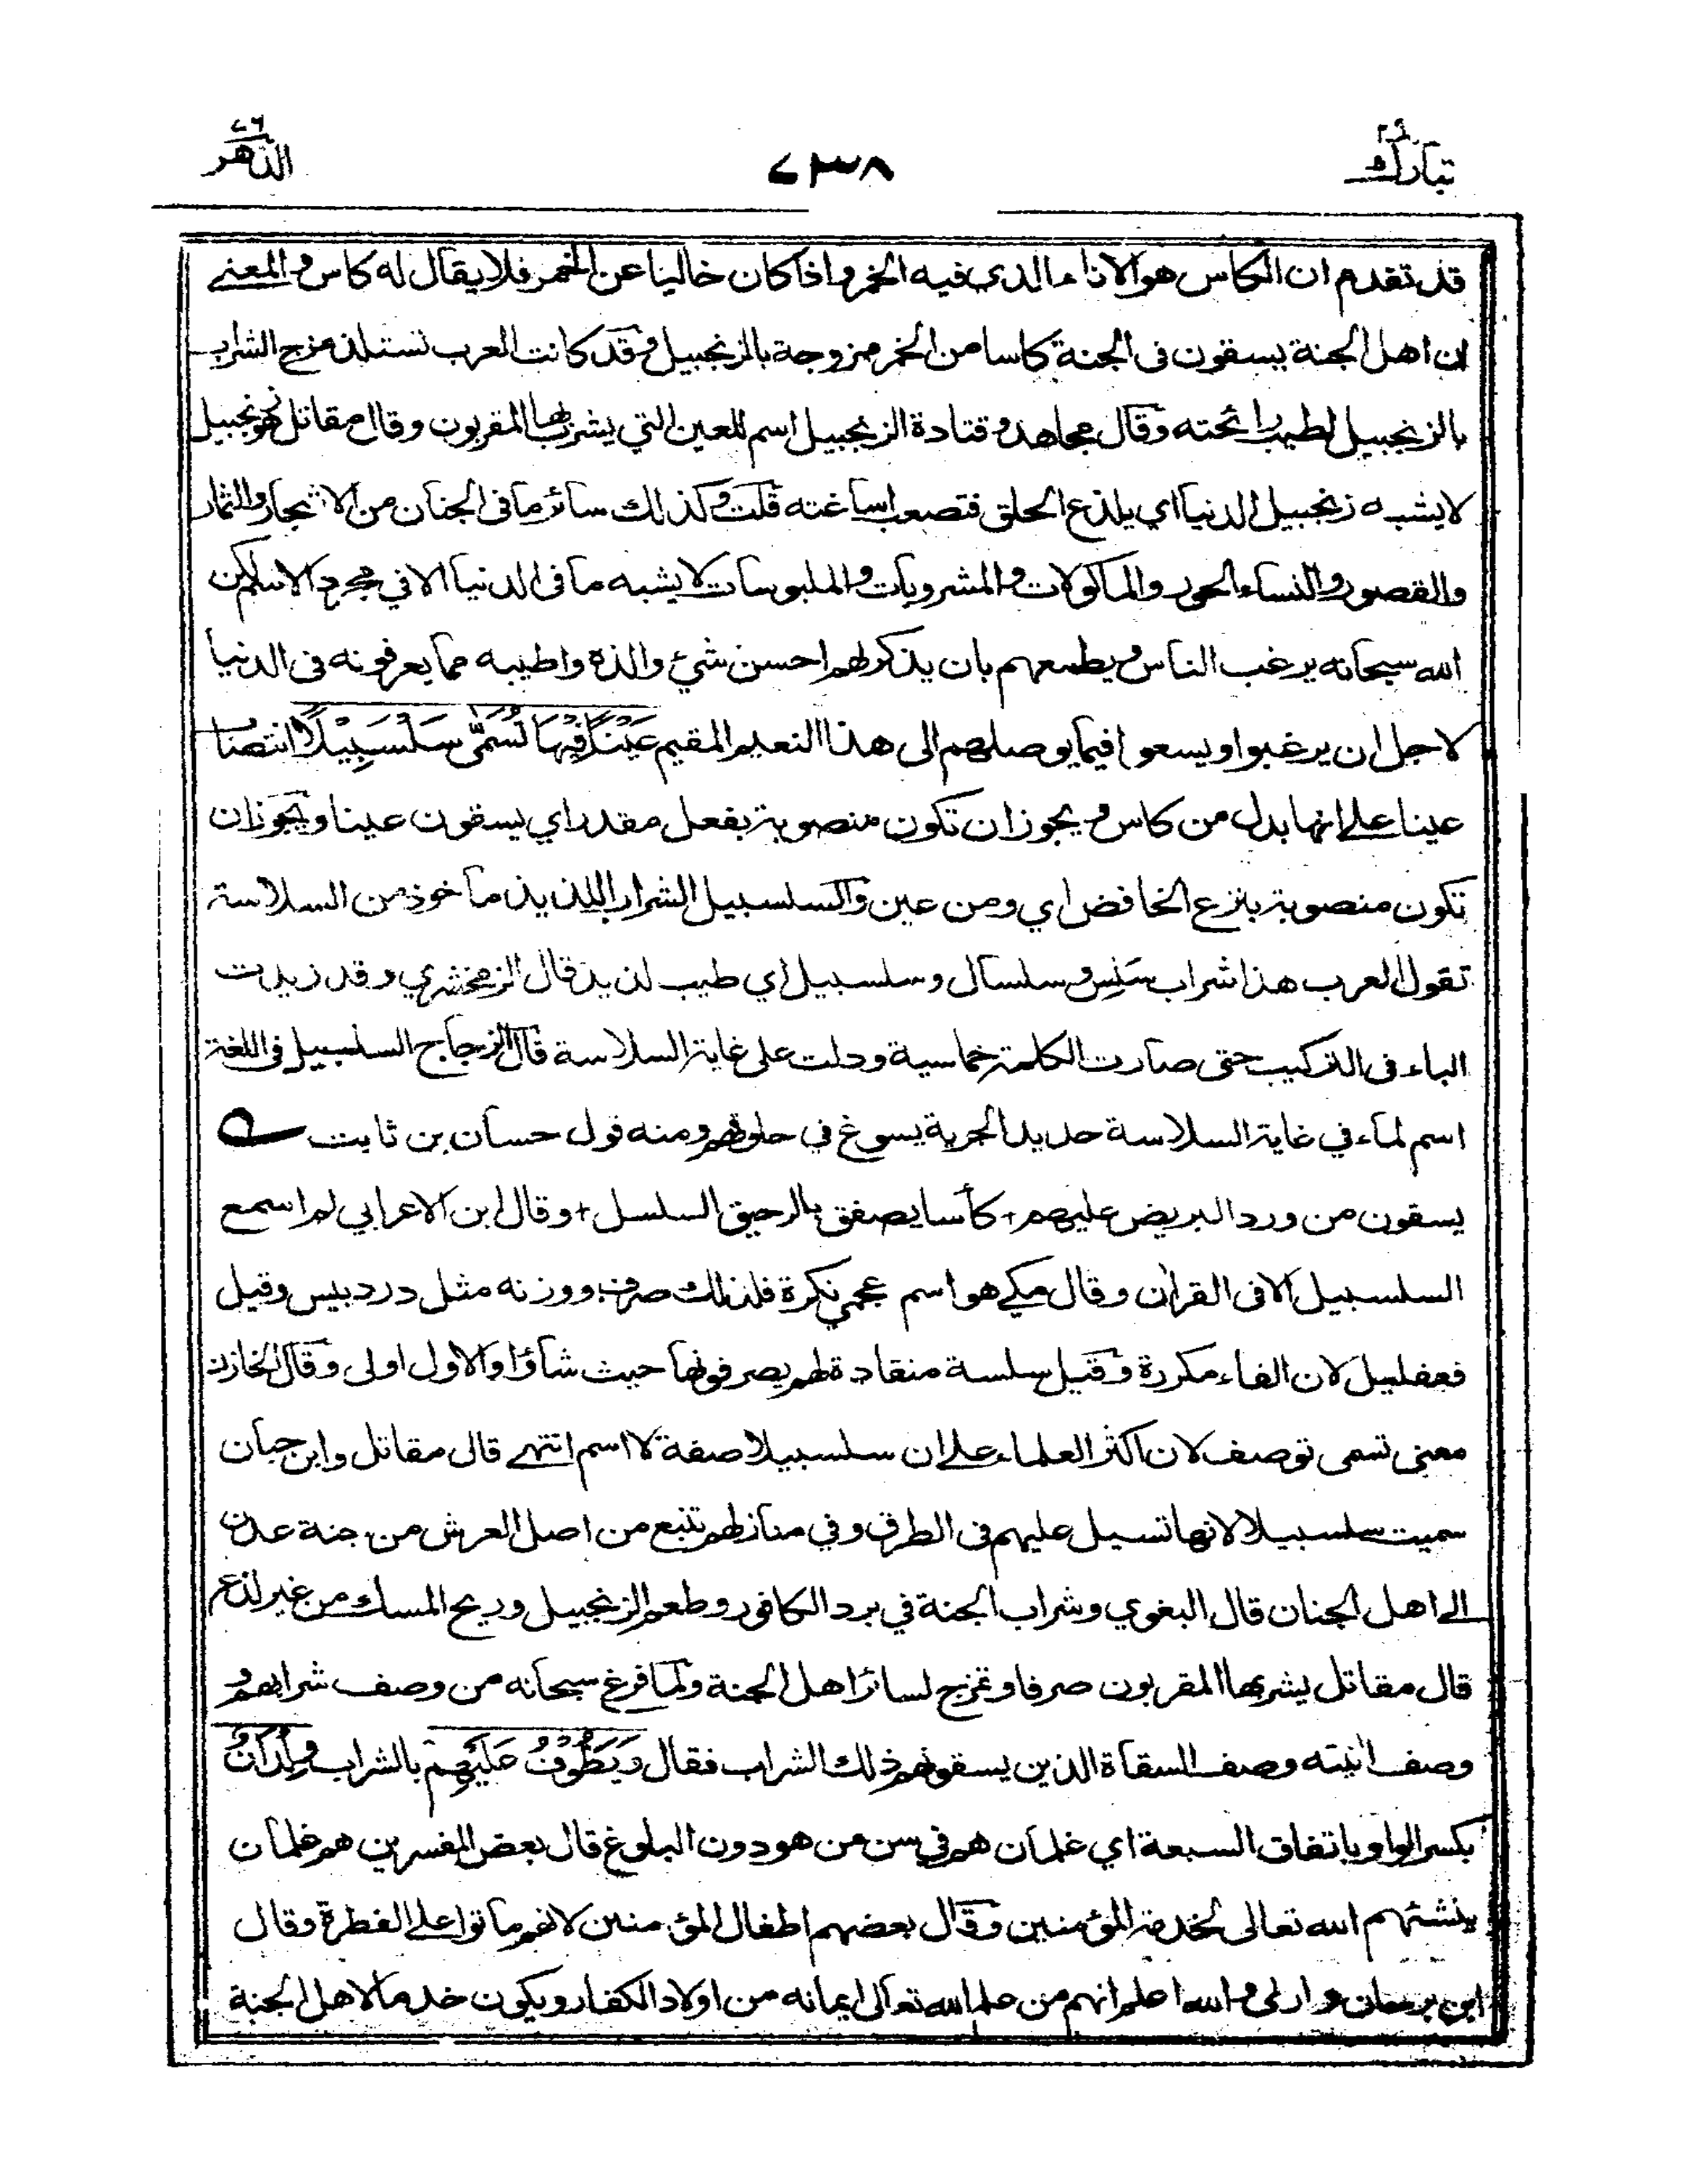 تبارك ٢٩
٧٣٨
الدهر ٧٦
قد تقدم ان الكاس هو الاناء الذي فيه الخمر واذا كان خاليا عن الخمر فلا يقال له كاس والمعنے
ان اهل الجنة يسقون فى الجنة كاسا من الخمر ممزوجة بالزنجبيل وقد كانت العرب تستلذ مزج الشراب
بالزنجبيل لطيب رائحته وقال مجاهد وقتادة الزنجبيل اسم للعين التي يشرب بها المقربون وقال مقاتل هو زنجبيل
لا يشبه زنجبيل الدنيا اي يلذع الحلق فتصعب اساغته قلت وكذلك سائر ما فى الجنان من الاشجار والثمار
والقصور والنساء الحور والماكولات والمشروبات والملبوسات لا يشبه ما فى الدنيا الا في مجرد الاسم لكن
الله سبحانه يرغب الناس ويطمعهم بان يذكر لهم احسن شيء والذه واطيبه مما يعرفونه فى الدنيا
لاجل ان يرغبوا ويسعوا فيما يوصلهم الى هذا النعيم المقيم عَيْنًا فِيْهَا تُسَمّٰى سَلْسَبِيْلًا انتصاب
عينا على انها بدل من كاس ويجوز ان تكون منصوبة بفعل مقدر اي يسقون عينا ويجوز ان
تكون منصوبة بنزع الخافض اي ومن عين والسلسبيل الشراب اللذيذ ماخوذ من السلاسة
تقول العرب هذا شراب سَلِس وسلسال وسلسبيل اي طيب لذيذ قال الزمخشري وقد زيدت
الباء فى التركيب حتى صارت الكلمة خماسية ودلت على غاية السلاسة قال الزجاج السلسبيل فى اللغة
اسم لماء في غاية السلاسة حديد الجرية يسوغ في حلوقهم ومنه قول حسان بن ثابت ے
يسقون من ورد البريض عليهم + كأسا يصفق بالرحيق السلسل + وقال ابن الاعرابي لم اسمع
السلسبيل الا فى القراٰن وقال مكے هو اسم عجمي نكرة فلذلك صرف ووزنه مثل دردبيس وقيل
فعفليل لان الفاء مكررة وقيل سلسة منقادة لهم يصرفونها حيث شاؤا والاول اولى وقال الخازن
معنى تسمى توصف لان اكثر العلماء على ان سلسبيلا صفة لا اسم انتهے قال مقاتل وابن حبان
سميت سلسبيلا لانها تسيل عليهم فى الطرق وفي منازلهم تنبع من اصل العرش من جنة عدن
الے اهل الجنان قال البغوي وشراب الجنة في برد الكافور وطعم الزنجبيل وريح المسك من غير لذع
قال مقاتل يشربها المقربون صرفا وتمزج لسائر اهل الجنة ولما فرغ سبحانه من وصف شرابهم و
وصف اٰنيته وصف السقاة الذين يسقونهم ذلك الشراب فقال وَيَطُوْفُ عَلَيْهِمْ بالشراب وِلْدَانٌ
بكسر الواو باتفاق السبعة اي غلمان هم في سن من هو دون البلوغ قال بعض المفسرين هم غلمان
ينشئهم الله تعالى لخدمة المؤمنين وقال بعضهم اطفال المؤمنين لانهم ماتوا على الفطرة وقال
ابن برجان وارى والله اعلم انهم من علم الله تعالى ايمانه من اولاد الكفار ويكون خدما لاهل الجنة